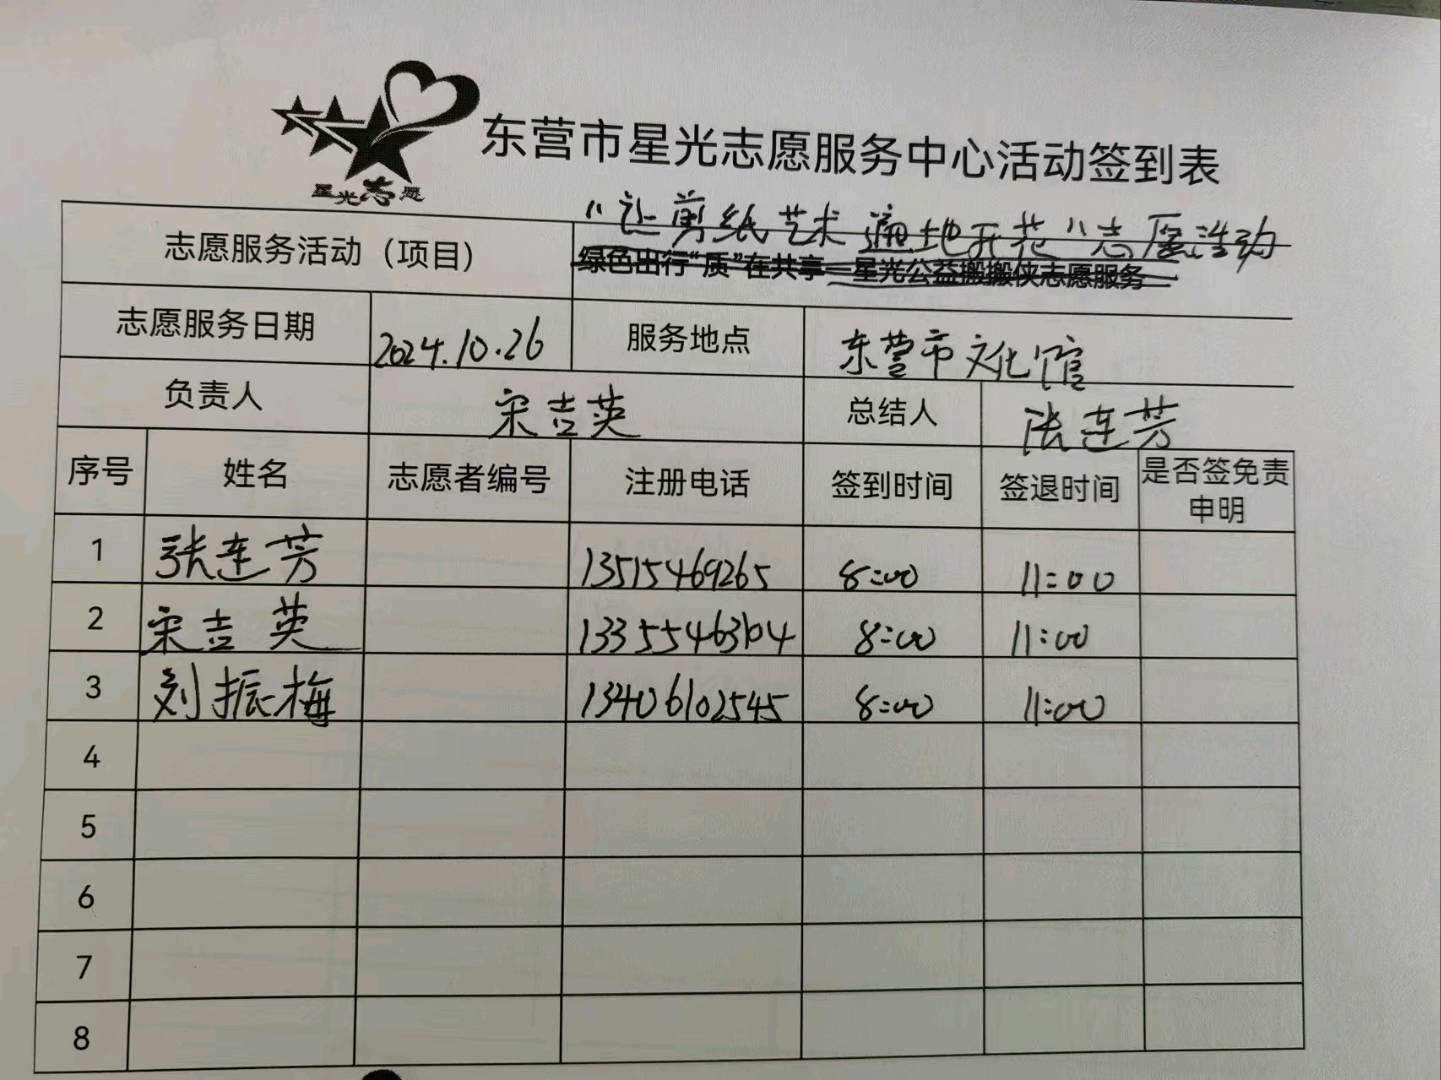 东营市星光志愿服务中心活动签到表
星光志愿
志愿服务活动（项目）
“让剪纸艺术遍地开花”志愿活动
绿色出行“质”在共享—星光公益搬搬侠志愿服务
志愿服务日期 2024.10.26 服务地点 东营市文化馆
负责人 宋吉英 总结人 张连芳
序号 姓名 志愿者编号 注册电话 签到时间 签退时间 是否签免责
申明
1 张连芳 13515469265 8:00 11:00
2 宋吉英 13355463104 8:00 11:00
3 刘振梅 13406102545 8:00 11:00
4
5
6
7
8